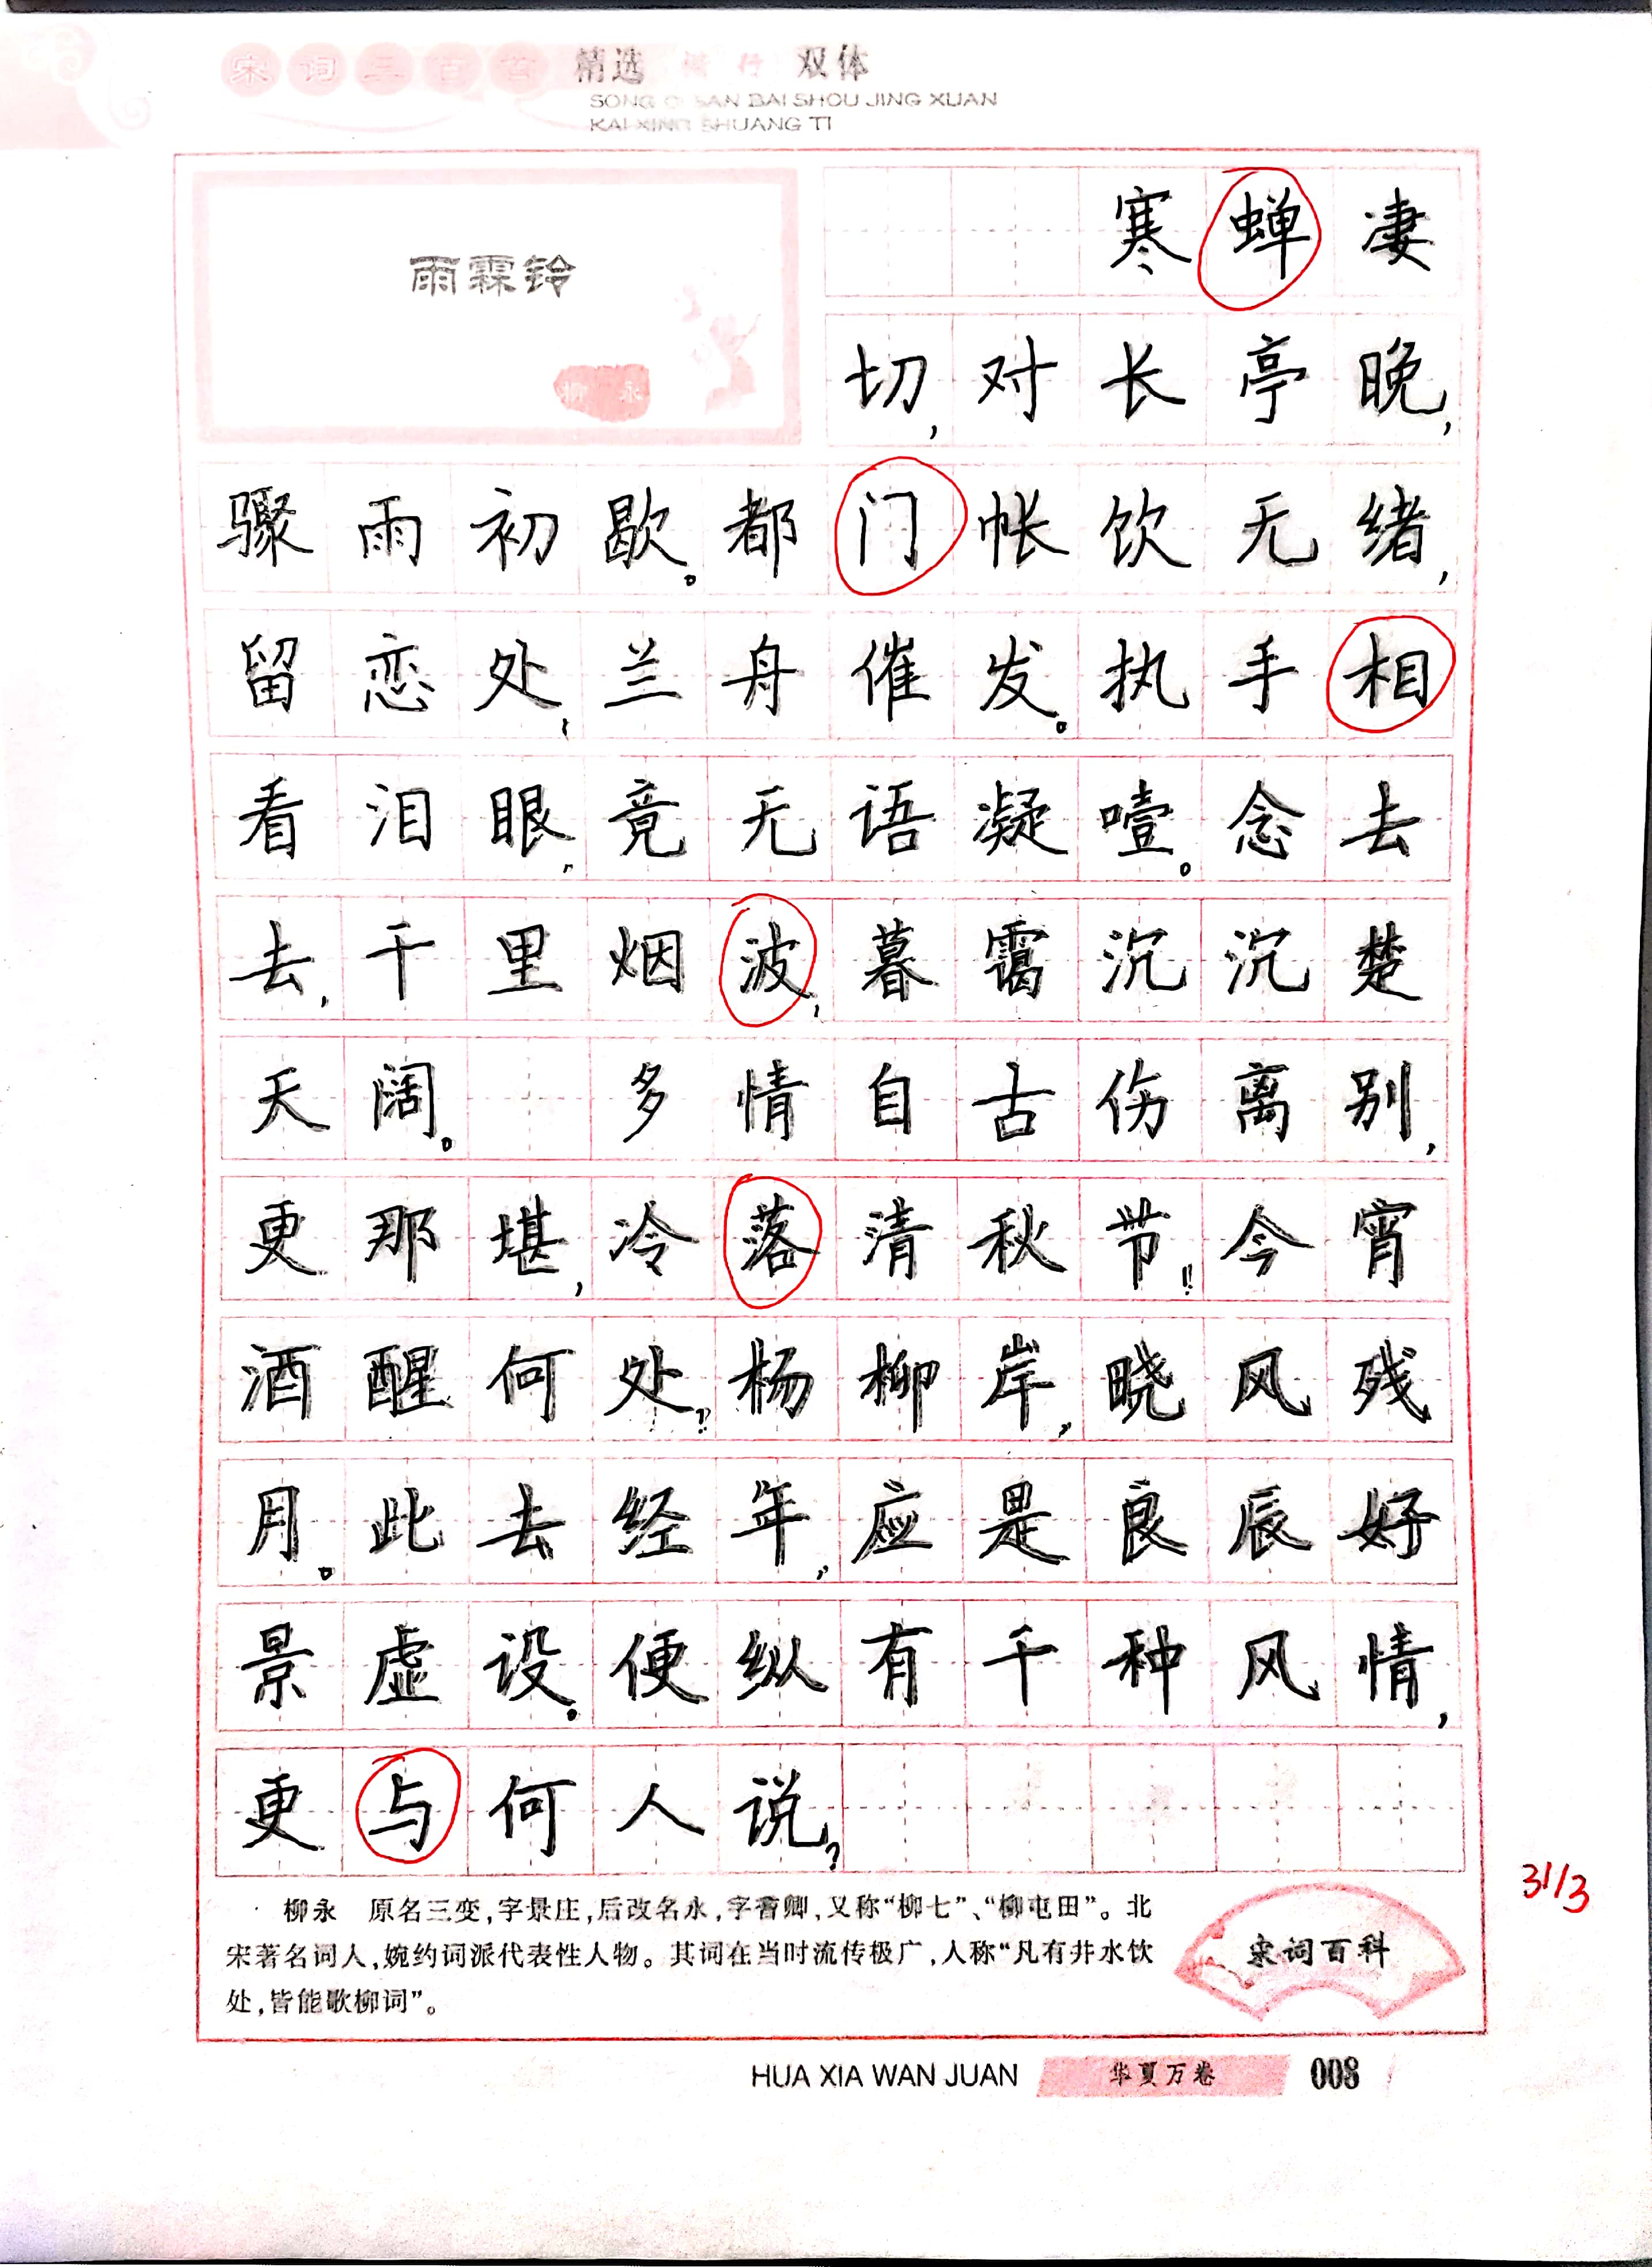 宋词三百首 精选 楷行 双体
SONG CI SAN BAI SHOU JING XUAN
KAI XING SHUANG TI
雨霖铃
柳永
寒蝉凄
切,对长亭晚,
骤雨初歇。都门帐饮无绪,
留恋处,兰舟催发。执手相
看泪眼,竟无语凝噎。念去
去,千里烟波,暮霭沉沉楚
天阔。 多情自古伤离别,
更那堪,冷落清秋节!今宵
酒醒何处?杨柳岸,晓风残
月。此去经年,应是良辰好
景虚设。便纵有千种风情,
更与何人说?
31/3
柳永 原名三变,字景庄,后改名永,字耆卿,又称“柳七”、“柳屯田”。北
宋著名词人,婉约词派代表性人物。其词在当时流传极广,人称“凡有井水饮
处,皆能歌柳词”。
宋词百科
HUA XIA WAN JUAN 华夏万卷 008